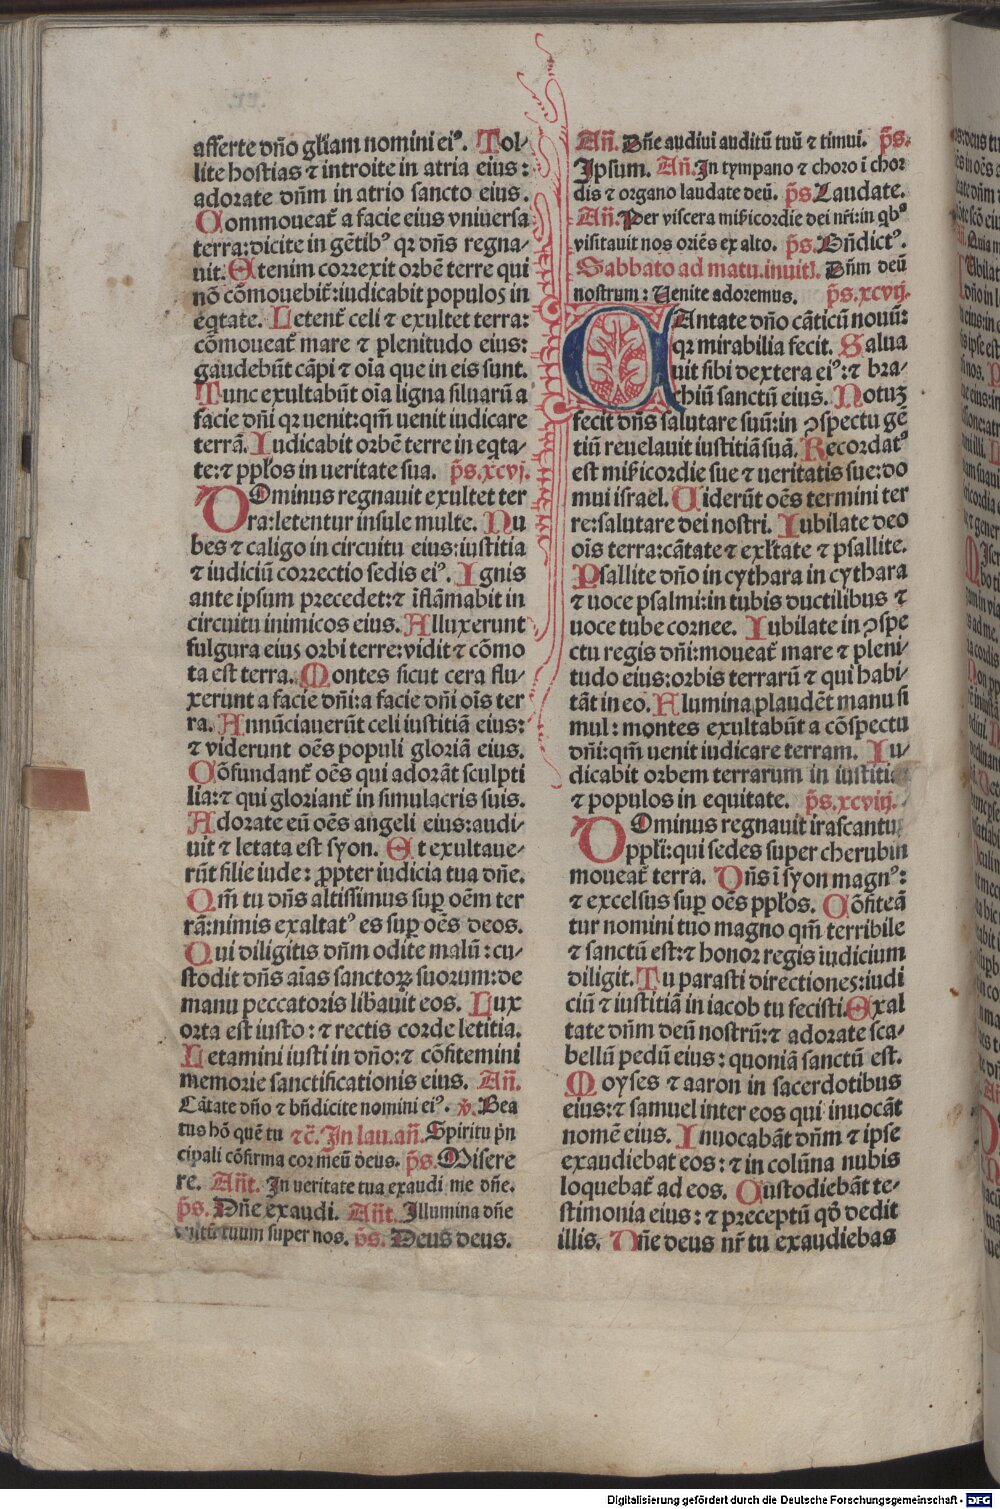 afferte dño gl̃iam nomini eiꝰ. Tol-
lite hostias ⁊ introite in atria eius:
adorate dñm in atrio sancto eius.
Commoueat᷑ a facie eius vniuersa
terra: dicite in gẽtibꝰ qꝛ dñs regna-
uit. Etenim correxit orbẽ terre qui
nõ cõmouebit᷑: iudicabit populos in
eqtate. Letent᷑ celi ⁊ exultet terra:
cõmoueat᷑ mare ⁊ plenitudo eius:
gaudebũt cãpi ⁊ oĩa que in eis sunt.
Tunc exultabũt oĩa ligna siluarũ a
facie dñi qꝛ uenit: qm̃ uenit iudicare
terrã. Iudicabit orbẽ terre in eqta-
te: ⁊ ppl̃os in ueritate sua. p̃s. xcvj.
DOminus regnauit exultet ter
ra: letentur insule multe. Nu
bes ⁊ caligo in circuitu eius: iustitia
⁊ iudiciũ correctio sedis eiꝰ. Ignis
ante ipsum precedet: ⁊ ĩflãmabit in
circuitu inimicos eius. Alluxerunt
fulgura eius orbi terre: vidit ⁊ cõmo
ta est terra. Montes sicut cera flu-
xerunt a facie dñi: a facie dñi oĩs ter
ra. Annũciauerũt celi iustitiã eius:
⁊ viderunt oẽs populi gloriã eius.
Cõfundant᷑ oẽs qui adorãt sculpti
lia: ⁊ qui gloriant᷑ in simulacris suis.
Adorate eũ oẽs angeli eius: audi-
uit ⁊ letata est syon. Et exultaue-
rũt filie iude: ꝓpter iudicia tua dñe.
Qm̃ tu dñs altissimus suꝑ oẽm ter
rã: nimis exaltatꝰ es suꝑ oẽs deos.
Qui diligitis dñm odite malũ: cu-
stodit dñs aĩas sanctoꝝ suorum: de
manu peccatoris lib̃auit eos. Lux
orta est iusto: ⁊ rectis corde letitia.
Letamini iusti in dño: ⁊ cõfitemini
memorie sanctificationis eius. Añ.
Cãtate dño ⁊ bñdicite nomini eiꝰ. ℣. Bea
tus hõ quẽ tu ⁊c̃. In lau. añ. Spiritu p̃n
cipali cõfirma cor meũ deus. p̃s. Misere
re. Añt. In ueritate tua exaudi me dñe.
p̃s. Dñe exaudi. Añt. Illumina dñe
vultũ tuum super nos. p̃s. Deus deus.
Añ. Dñe audiui auditũ tuũ ⁊ timui. p̃s.
Ipsum. Añ. In tympano ⁊ choro ĩ chor
dis ⁊ organo laudate deũ. p̃s. Laudate.
Añ. Per viscera mis̃icordie dei nr̃i: in qbꝰ
visitauit nos oriẽs ex alto. p̃s. Bñdictꝰ.
Sabbato ad matu. inuit̃. Dñm deũ
nostrum: Uenite adoremus. p̃s. xcvij.
CAntate dño cãticũ nouũ:
qꝛ mirabilia fecit. Salua
uit sibi dextera eiꝰ: ⁊ bra-
chiũ sanctũ eius. Notuꝫ
fecit dñs salutare suũ: in ꝯspectu gẽ
tiũ reuelauit iustitiã suã. Recordatꝰ
est mis̃icordie sue ⁊ ueritatis sue: do
mui israel. Uiderũt oẽs termini ter
re: salutare dei nostri. Iubilate deo
oĩs terra: cãtate ⁊ exl̃tate ⁊ psallite.
Psallite dño in cythara in cythara
⁊ uoce psalmi: in tubis ductilibus ⁊
uoce tube cornee. Iubilate in ꝯspe
ctu regis dñi: moueat᷑ mare ⁊ pleni-
tudo eius: orbis terrarũ ⁊ qui habi-
tãt in eo. Flumina plaudẽt manu si
mul: montes exultabũt a cõspectu
dñi: qm̃ uenit iudicare terram. Iu-
dicabit orbem terrarum in iustitia
⁊ populos in equitate. p̃s. xcviij.
DOminus regnauit irascantur
ppl̃i: qui sedes super cherubin
moueat᷑ terra. Dñs ĩ syon magnꝰ:
⁊ excelsus suꝑ oẽs ppl̃os. Cõfiteã
tur nomini tuo magno qm̃ terribile
⁊ sanctũ est: ⁊ honor regis iudicium
diligit. Tu parasti directiones: iudi
ciũ ⁊ iustitiã in iacob tu fecisti. Exal
tate dñm deũ nostrũ: ⁊ adorate sca-
bellũ pedũ eius: quoniã sanctũ est.
Moyses ⁊ aaron in sacerdotibus
eius: ⁊ samuel inter eos qui inuocãt
nomẽ eius. Inuocabãt dñm ⁊ ipse
exaudiebat eos: ⁊ in colũna nubis
loquebat᷑ ad eos. Custodiebãt te-
stimonia eius: ⁊ preceptũ qõ dedit
illis. Dñe deus nr̃ tu exaudiebas
Digitalisierung gefördert durch die Deutsche Forschungsgemeinschaft - DFG